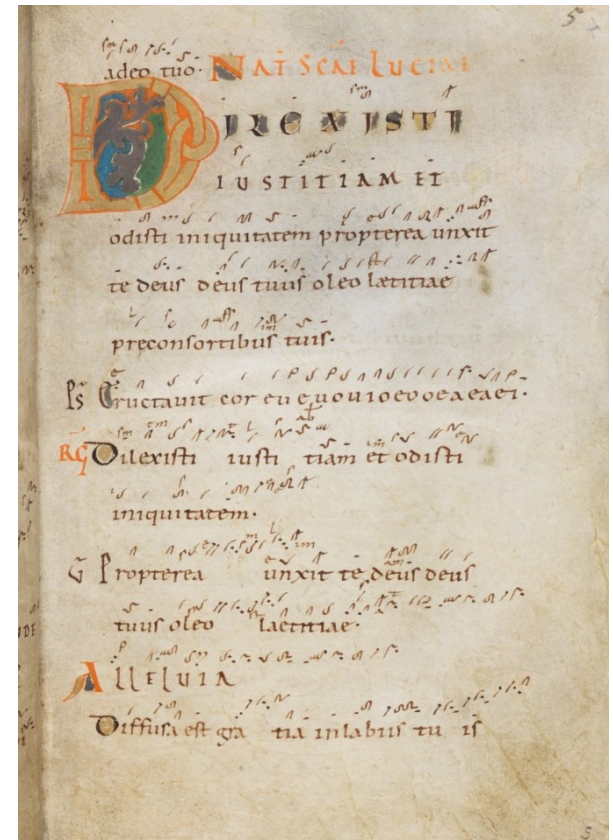 5
adeo tuo. NAT SCAE LUCIAE
DILEXISTI
IUSTITIAM ET
odisti iniquitatem propterea unxit
te deus deus tuus oleo lætitiae
preconsortibus tuis.
Ps Eructauit cor eu e u o u i o e o o e a e a e i.
RG Dilexisti iusti tiam et odisti
iniquitatem.
V Propterea unxit te deus deus
tuus oleo laetitiae.
ALLELUIA
Diffusa est gra tia inlabiis tu is